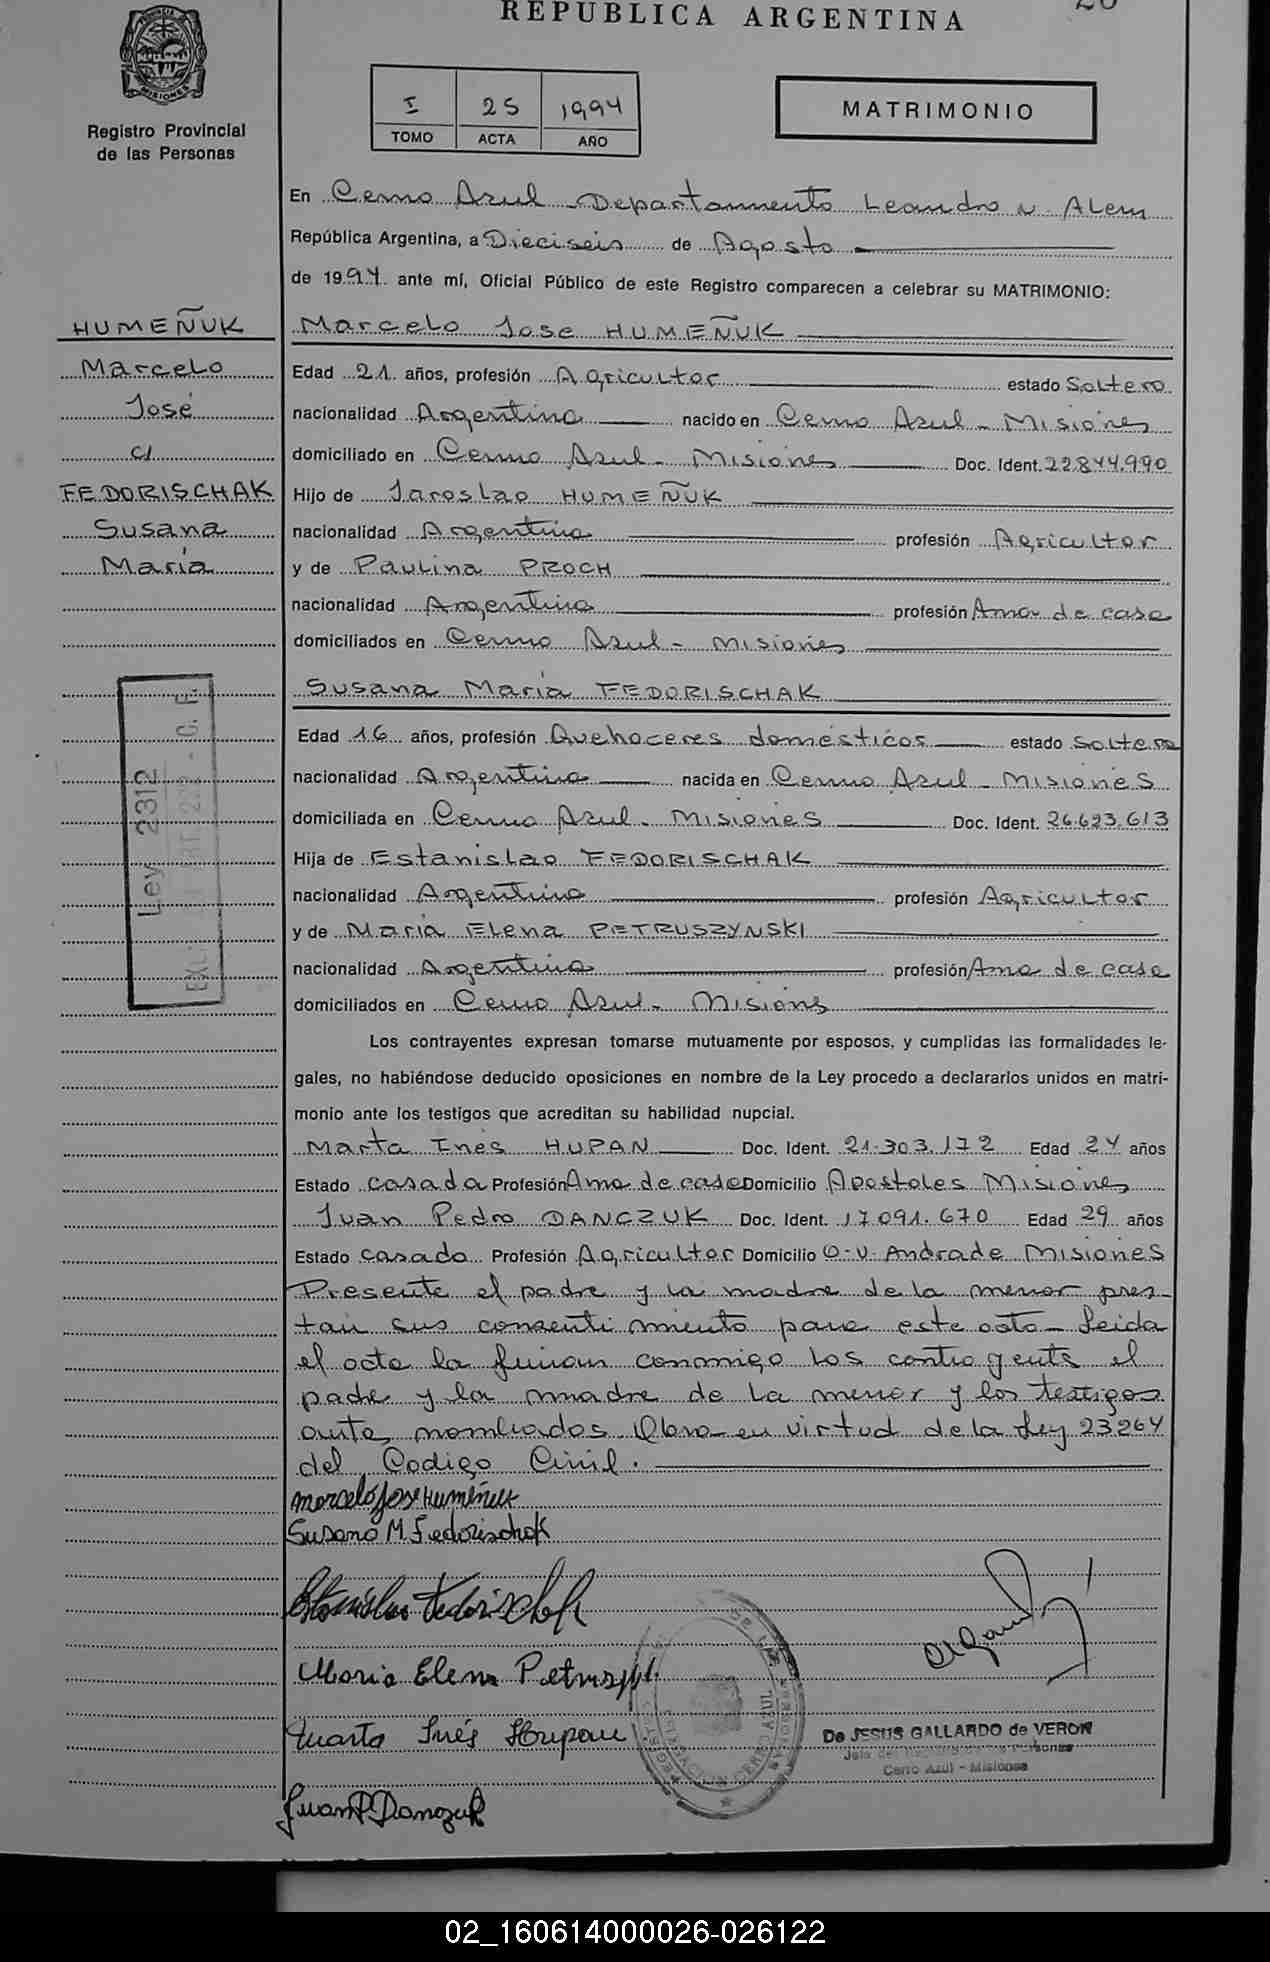 REPUBLICA ARGENTINA
PROVINCIA DE MISIONES
Registro Provincial
de las Personas
I 25 1994
TOMO ACTA AÑO
MATRIMONIO
HUMEÑUK
Marcelo
José
c/
FEDORISCHAK
Susana
María
Ley 2312
En Cerro Azul Departamento Leandro N. Alem
República Argentina, a Dieciseis de Agosto
de 1994 ante mí, Oficial Público de este Registro comparecen a celebrar su MATRIMONIO:
Marcelo Jose HUMEÑUK
Edad 21 años, profesión Agricultor estado Soltero
nacionalidad Argentina nacido en Cerro Azul - Misiones
domiciliado en Cerro Azul - Misiones Doc. Ident. 22.844.990
Hijo de Jaroslao HUMEÑUK
nacionalidad Argentina profesión Agricultor
y de Paulina PROCH
nacionalidad Argentina profesión Ama de casa
domiciliados en Cerro Azul - Misiones
Susana María FEDORISCHAK
Edad 16 años, profesión Quehaceres domésticos estado soltera
nacionalidad Argentina nacida en Cerro Azul - Misiones
domiciliada en Cerro Azul - Misiones Doc. Ident. 26.623.613
Hija de Estanislao FEDORISCHAK
nacionalidad Argentina profesión Agricultor
y de María Elena PETRUSZYNSKI
nacionalidad Argentina profesión Ama de casa
domiciliados en Cerro Azul - Misions
Los contrayentes expresan tomarse mutuamente por esposos, y cumplidas las formalidades le-
gales, no habiéndose deducido oposiciones en nombre de la Ley procedo a declararlos unidos en matri-
monio ante los testigos que acreditan su habilidad nupcial.
Marta Inés HUPAN Doc. Ident. 21.303.172 Edad 24 años
Estado casada Profesión Ama de casa Domicilio Apostoles Misiones
Juan Pedro DANCZUK Doc. Ident. 17.091.670 Edad 29 años
Estado casado Profesión Agricultor Domicilio O.V. Andrade Misiones
Presente el padre y la madre de la menor pres-
tan sus consentimiento para este acto - Leida
el acta la firman conmigo los contragents el
padre y la madre de la menor y los testigos
ante nombrados. Obra en virtud de la Ley 23264
del Codigo Civil.
Marcelo Jose Humeñuk
Susana M. Fedorischak
Estanislao Fedorischak
Maria Elena
Marta Inés Hupan
Juan P Danczuk
De JESUS GALLARDO de VERON
Jefa del Registro de las Personas
Cerro Azul - Misiones
02_160614000026-026122